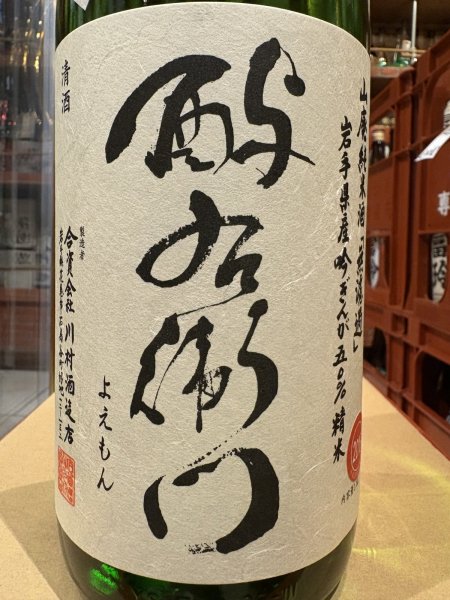 山廃純米酒「無濾過」
岩手県産吟ぎんが五〇%精米
酔右衛門
よえもん
製造者
合資会社川村酒造店
清酒